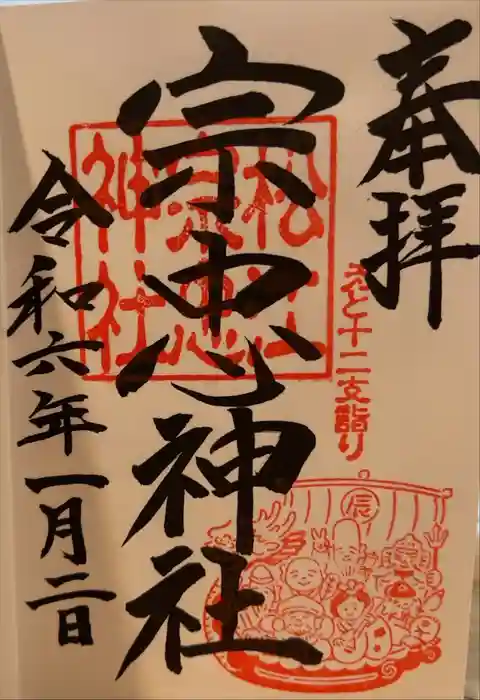 奉拝
えと十二支詣り
宗忠神社
松江
宗忠
神社
辰
令和六年一月二日